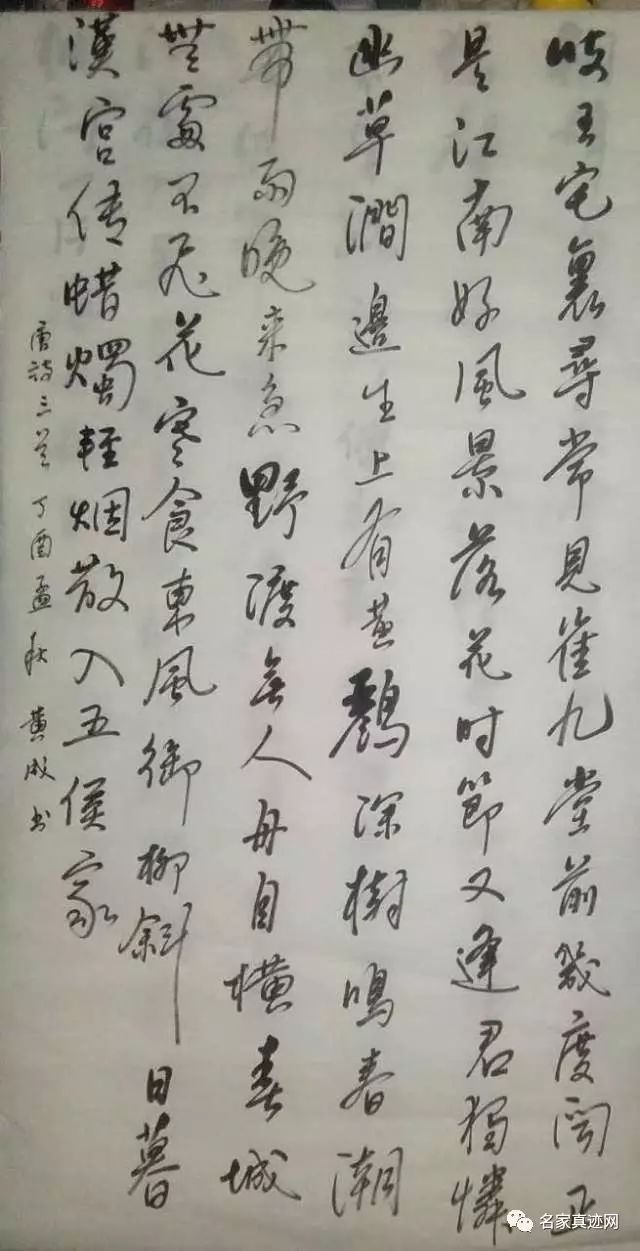 岐王宅裏尋常見崔九堂前幾度聞正
是江南好風景落花时節又逢君獨憐
幽草澗邊生上有黄鸝深樹鳴春潮
帶雨晚来急野渡無人舟自橫春城
無處不飛花寒食東風御柳斜日暮
漢宫传蜡燭輕烟散入五侯家
唐詩三首丁酉孟秋黄成书
名家真迹网